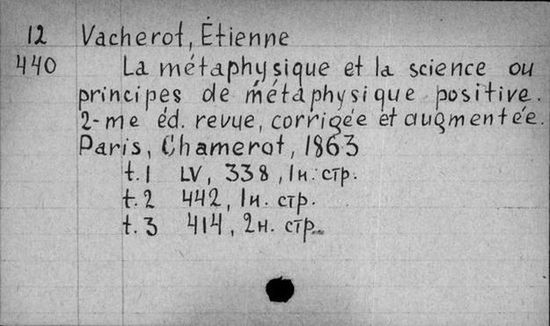 12 Vacherot, Étienne
440 La métaphysique et la science ou
principes de métaphysique positive.
2-me éd. revue, corrigée et augmentée.
Paris, Chamerot, 1863
t. 1 LV, 338, 1н. стр.
t. 2 442, 1н. стр.
t. 3 414, 2н. стр.